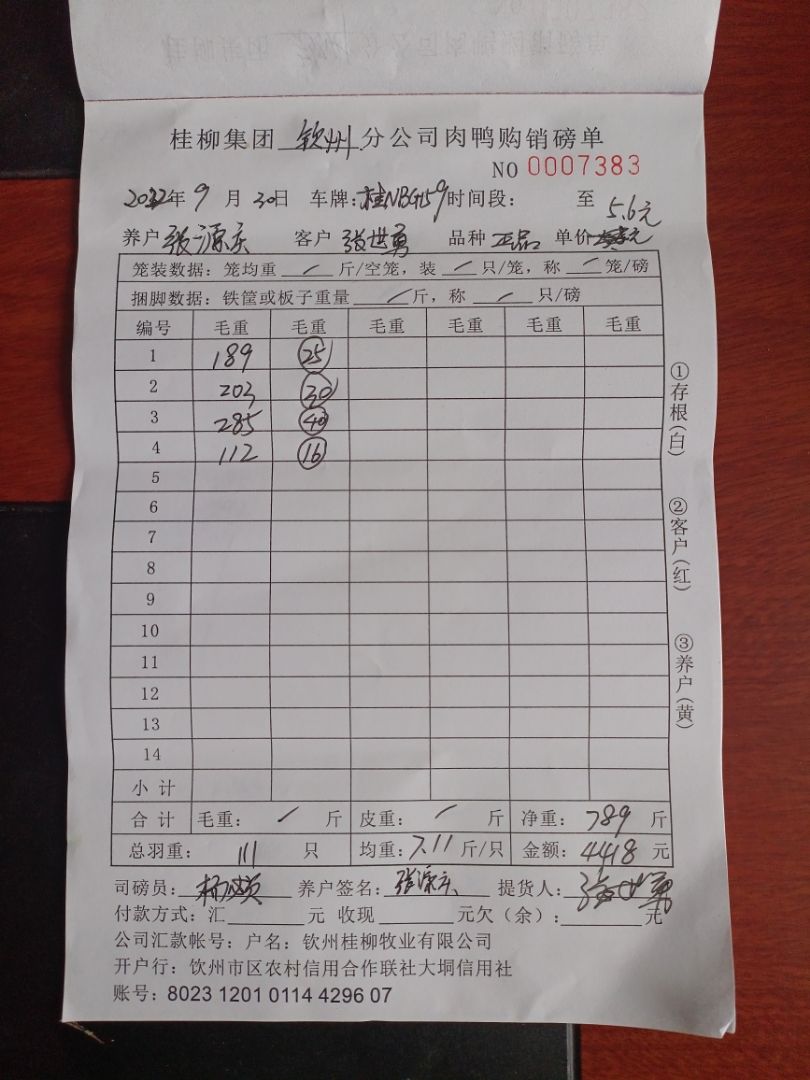 桂柳集团 钦州 分公司肉鸭购销磅单
NO 0007383
2022年 9 月 30日 车牌:桂NBG159 时间段: 至
5.6元
养户 张源庆 客户 张世勇 品种 正品 单价
笼装数据: 笼均重 / 斤/空笼, 装 / 只/笼, 称 / 笼/磅
捆脚数据: 铁筐或板子重量 / 斤, 称 / 只/磅
编号 毛重 毛重 毛重 毛重 毛重 毛重
1 189 25
2 203 30
3 285 40
4 112 16
5
6
7
8
9
10
11
12
13
14
小 计
合 计 毛重: / 斤 皮重: / 斤 净重: 789 斤
总羽重: 111 只 均重: 7.11 斤/只 金额: 4418 元
司磅员: 养户签名: 张源庆 提货人: 张世勇
付款方式: 汇 元 收现 元欠(余): 元
公司汇款帐号: 户名: 钦州桂柳牧业有限公司
开户行: 钦州市区农村信用合作联社大垌信用社
账号: 8023 1201 0114 4296 07
①存根(白)
②客户(红)
③养户(黄)